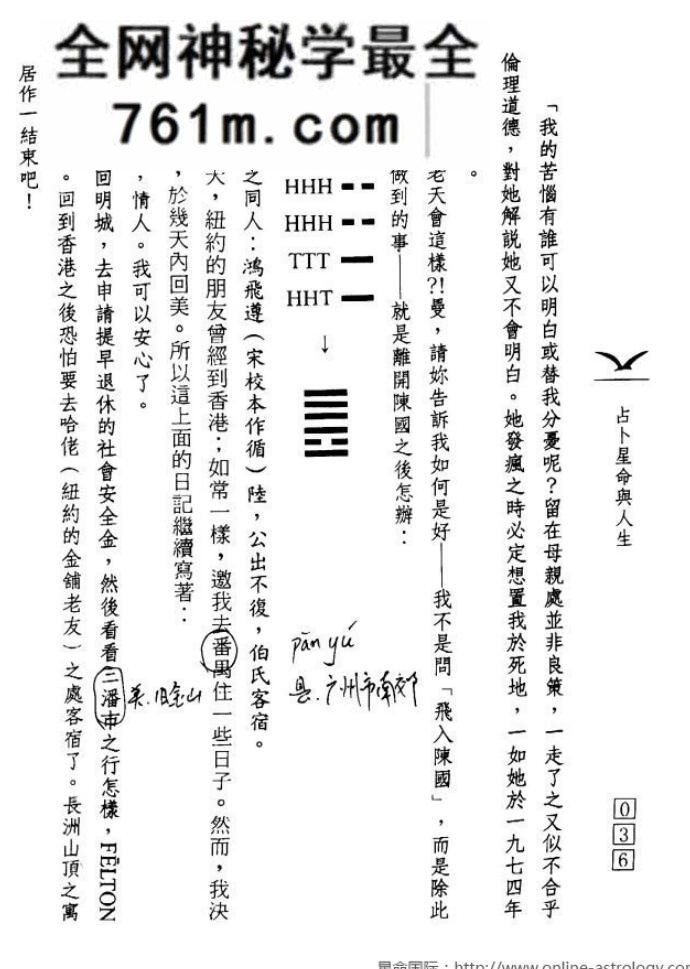 全网神秘学最全
761m.com
占卜星命與人生
036
「我的苦惱有誰可以明白或替我分憂呢？留在母親處並非良策，一走了之又似不合乎
倫理道德，對她解說她又不會明白。她發瘋之時必定想置我於死地，一如她於一九七四年
。
老天會這樣?!曼，請妳告訴我如何是好——我不是問「飛入陳國」，而是除此
做到的事——就是離開陳國之後怎辦：
HHH
HHH
TTT
HHT
↓
pān yú
县.广州市南郊
之同人：鴻飛遵（宋校本作循）陸，公出不復，伯氏客宿。
天，紐約的朋友曾經到香港；如常一樣，邀我去番禺住一些日子。然而，我決
，於幾天內回美。所以這上面的日記繼續寫著：
美.旧金山
，情人。我可以安心了。
回明城，去申請提早退休的社會安全金，然後看看三潘市之行怎樣，FELTON
。回到香港之後恐怕要去哈佬（紐約的金舖老友）之處客宿了。長洲山頂之寓
居作一結束吧！
星命国际：http://www.online-astrology.com